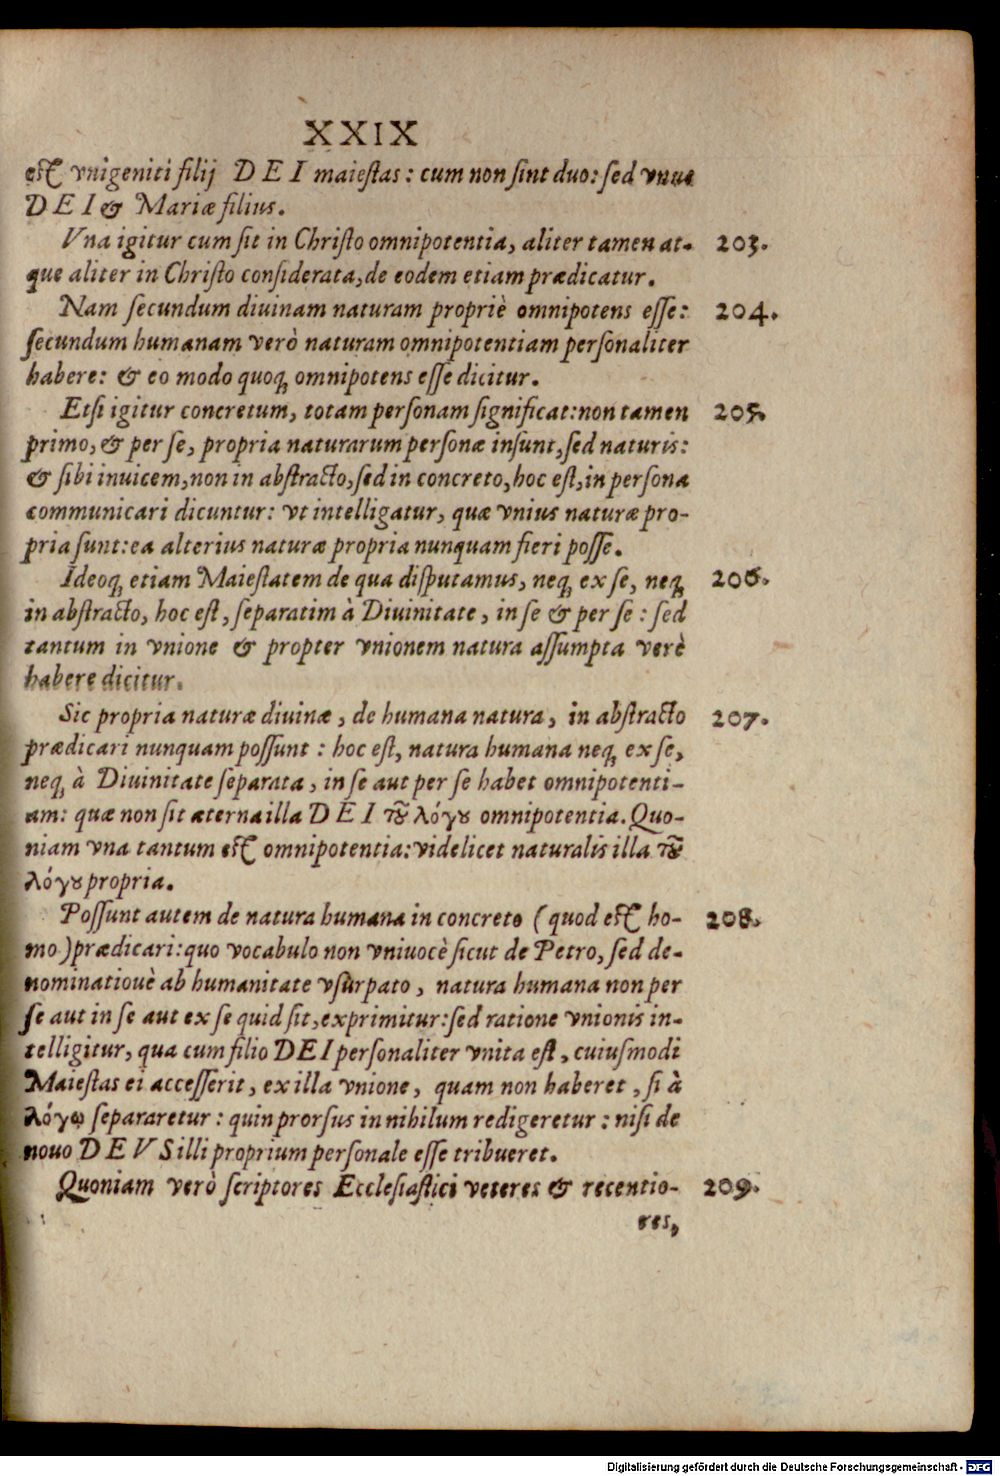 XXIX
est vnigeniti filij DEI maiestas: cum non sint duo: sed vnus
DEI & Mariæ filius.
Vna igitur cum sit in Christo omnipotentia, aliter tamen at- 203.
que aliter in Christo considerata, de eodem etiam prædicatur.
Nam secundum diuinam naturam propriè omnipotens esse: 204.
secundum humanam verò naturam omnipotentiam personaliter
habere: & eo modo quoq; omnipotens esse dicitur.
Etsi igitur concretum, totam personam significat: non tamen 205.
primo, & per se, propria naturarum personæ insunt, sed naturis:
& sibi inuicem, non in abstracto, sed in concreto, hoc est, in persona
communicari dicuntur: vt intelligatur, quæ vnius naturæ pro-
pria sunt: ea alterius naturæ propria nunquam fieri posse.
Ideoq; etiam Maiestatem de qua disputamus, neq; ex se, neq; 206.
in abstracto, hoc est, separatim à Diuinitate, in se & per se: sed
tantum in vnione & propter vnionem natura assumpta verè
habere dicitur.
Sic propria naturæ diuinæ, de humana natura, in abstracto 207.
prædicari nunquam possunt: hoc est, natura humana neq; ex se,
neq; à Diuinitate separata, in se aut per se habet omnipotenti-
am: quæ non sit æterna illa DEI τοῦ λόγου omnipotentia. Quo-
niam vna tantum est omnipotentia: videlicet naturalis illa τοῦ
λόγου propria.
Possunt autem de natura humana in concreto (quod est ho- 208.
mo) prædicari: quo vocabulo non vniuocè sicut de Petro, sed de-
nominatiouè ab humanitate vsurpato, natura humana non per
se aut in se aut ex se quid sit, exprimitur: sed ratione vnionis in-
telligitur, qua cum filio DEI personaliter vnita est, cuiusmodi
Maiestas ei accesserit, ex illa vnione, quam non haberet, si à
λόγῳ separaretur: quin prorsus in nihilum redigeretur: nisi de
nouo DEVS illi proprium personale esse tribueret.
Quoniam verò scriptores Ecclesiastici veteres & recentio- 209.
res,
Digitalisierung gefördert durch die Deutsche Forschungsgemeinschaft - DFG